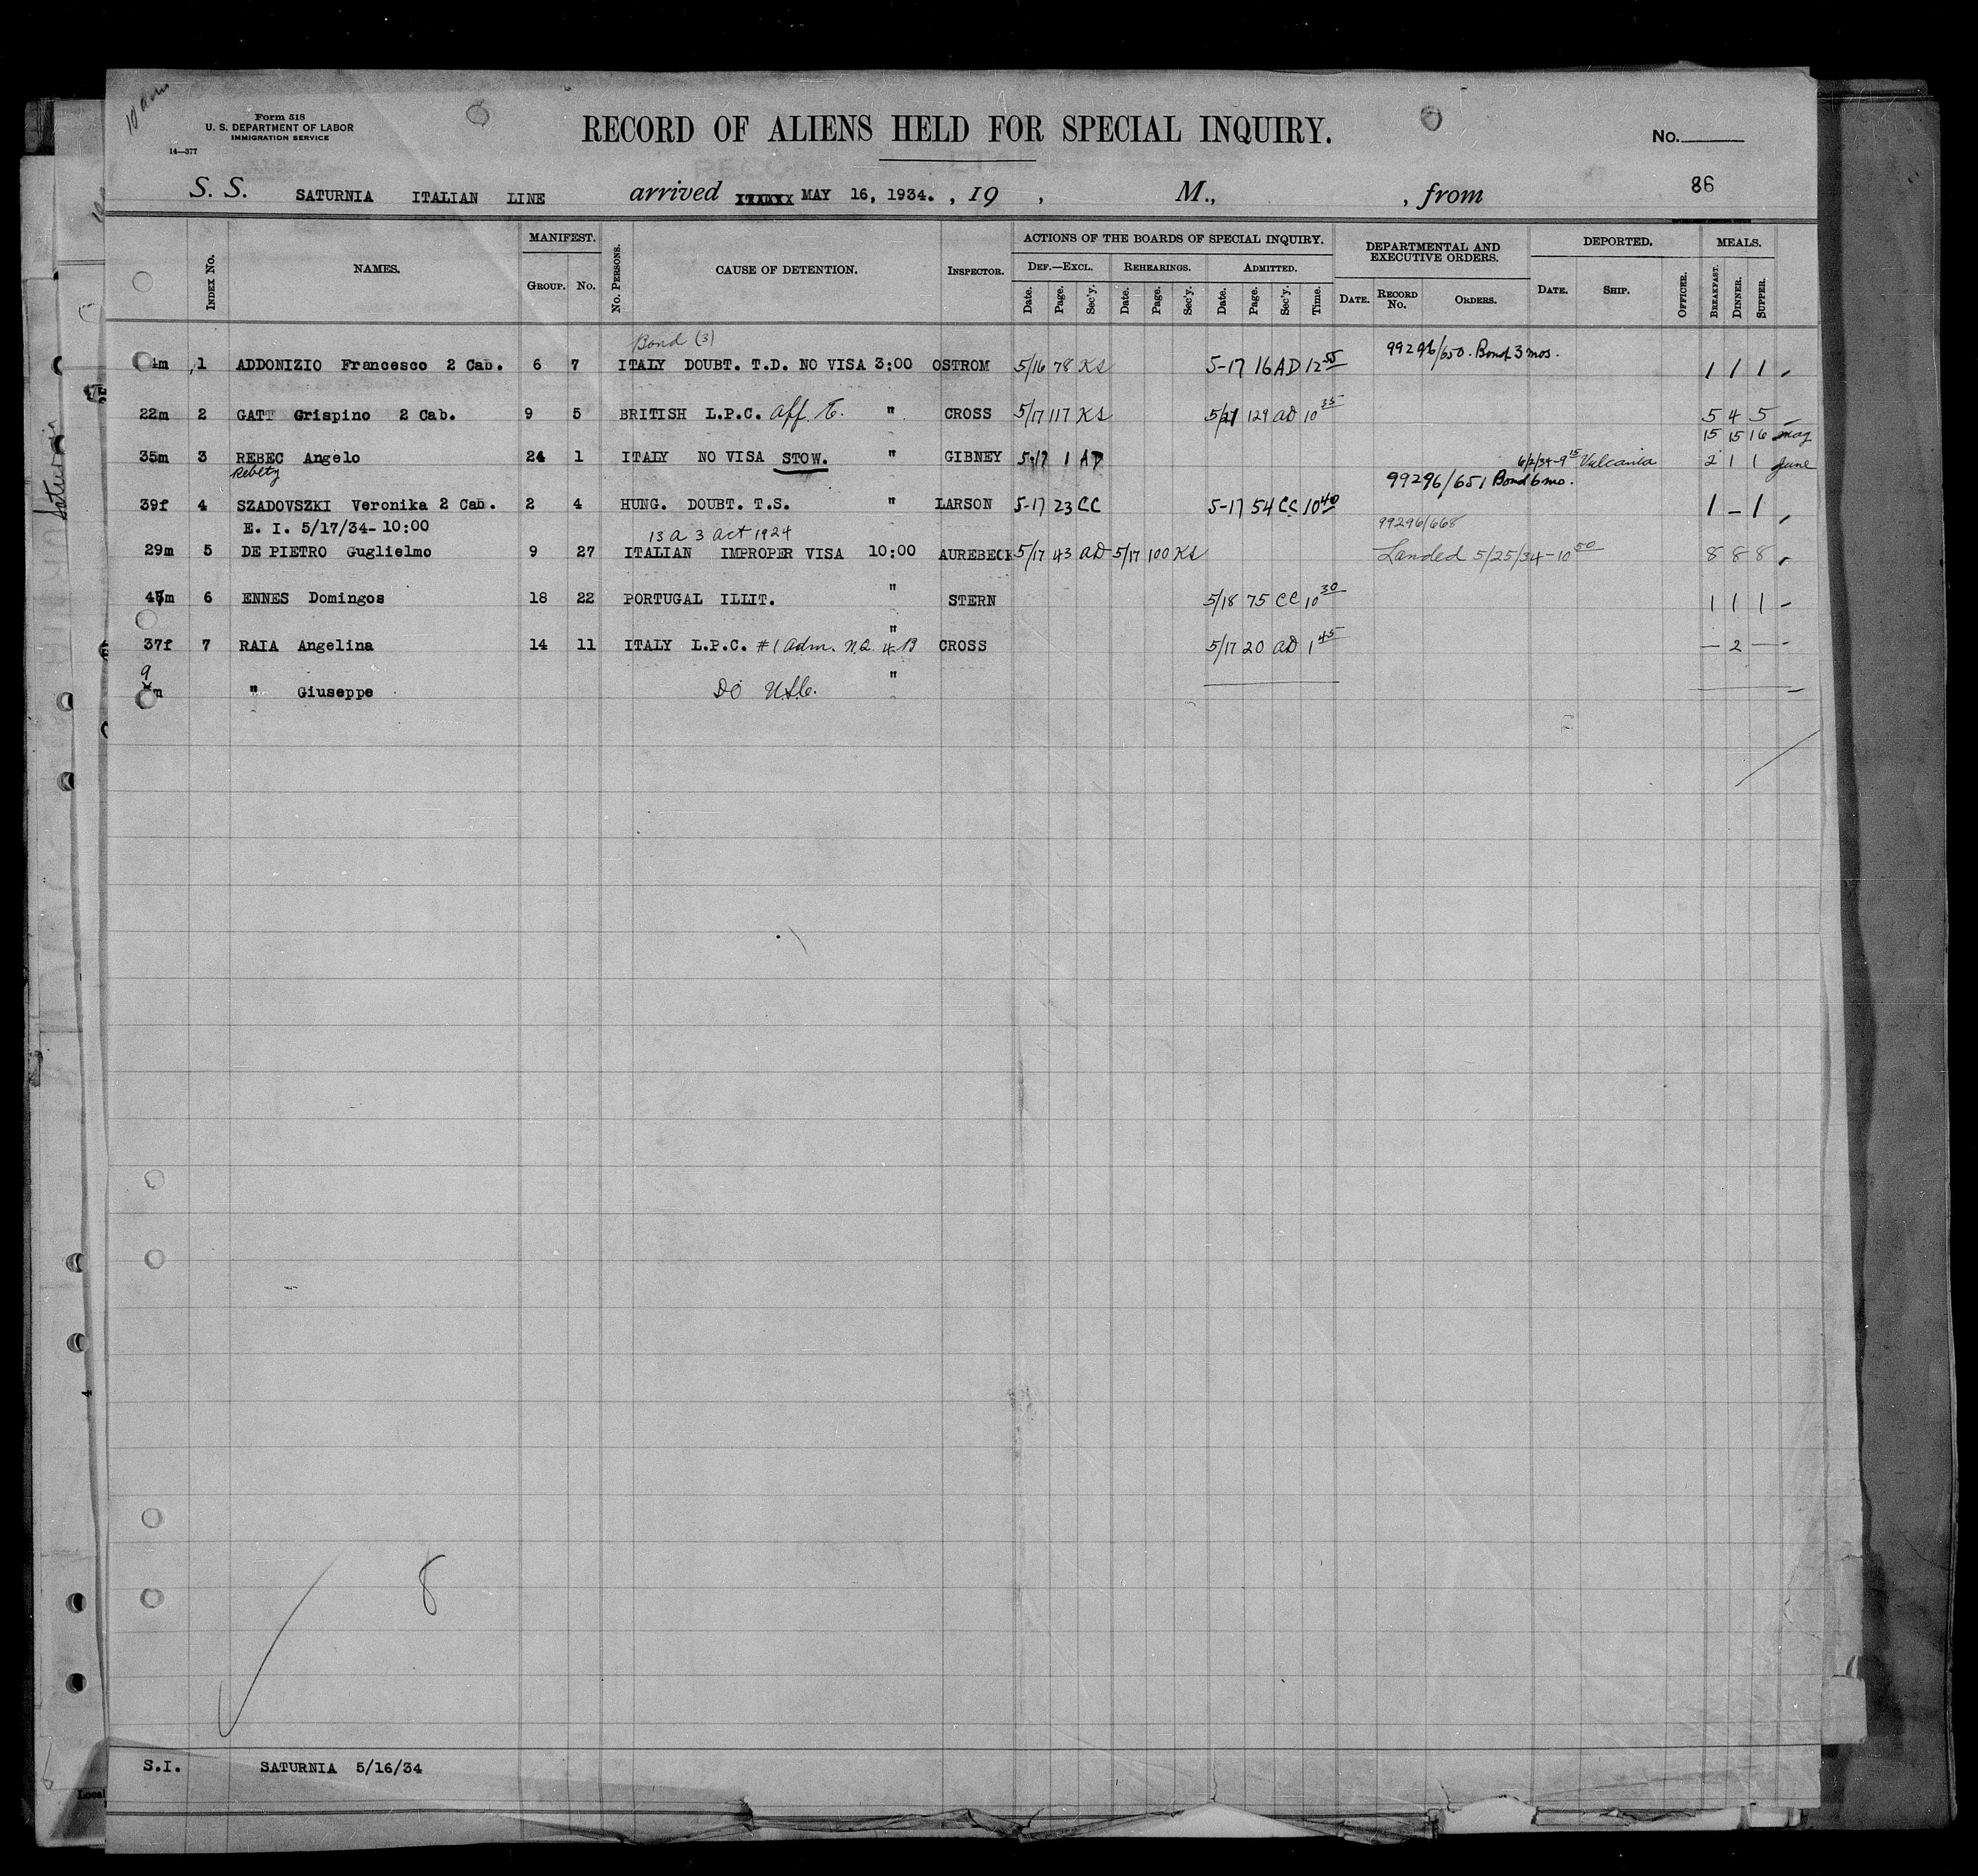 10 am
Form 518
U. S. DEPARTMENT OF LABOR
IMMIGRATION SERVICE
14—377
RECORD OF ALIENS HELD FOR SPECIAL INQUIRY.
No.
S. S. SATURNIA ITALIAN LINE arrived MAY 16, 1934. , 19 , M., , from
86
INDEX No.
NAMES.
MANIFEST.
GROUP. No.
No. PERSONS.
CAUSE OF DETENTION.
INSPECTOR.
ACTIONS OF THE BOARDS OF SPECIAL INQUIRY.
DEF.—EXCL. REHEARINGS. ADMITTED.
Date. Page. Sec'y. Date. Page. Sec'y. Date. Page. Sec'y. Time.
DEPARTMENTAL AND EXECUTIVE ORDERS.
DATE. RECORD No. ORDERS.
DEPORTED.
DATE. SHIP. OFFICER.
MEALS.
BREAKFAST. DINNER. SUPPER.
Bond (3)
1m 1 ADDONIZIO Francesco 2 Cab. 6 7 ITALY DOUBT. T.D. NO VISA 3:00 OSTROM 5/16 78 KS 5-17 16 AD 12 55 99296/650. Bond 3 mos. 1 1 1
22m 2 GATT Grispino 2 Cab. 9 5 BRITISH L.P.C. aff. T. " CROSS 5/17 117 KS 5/21 129 AD 10 35 5 4 5
15 15 16 May
35m 3 REBEC Angelo 24 1 ITALY NO VISA STOW. " GIBNEY 5/17 1 AD 6/2/34-9 15 Vulcania 2 1 1 June
Rebetz
99296/651 Bond 6 mo.
39f 4 SZADOVSZKI Veronika 2 Cab. 2 4 HUNG. DOUBT. T.S. " LARSON 5-17 23 CC 5-17 54 CC 10 40 1 - 1
E. I. 5/17/34- 10:00
13 a 3 act 1924
99296/668
29m 5 DE PIETRO Guglielmo 9 27 ITALIAN IMPROPER VISA 10:00 AUREBECK 5/17 43 AD 5/17 100 KS Landed 5/25/34-10 50 8 8 8
m 6 ENNES Domingos 18 22 PORTUGAL ILLIT. " STERN 5/18 75 CC 10 30 1 1 1
37f 7 RAIA Angelina 14 11 ITALY L.P.C. #1 adm. " CROSS 5/17 20 AD 1 45 - 2 -
9
m " Giuseppe DO U.S.C. "
8
S.I. SATURNIA 5/16/34
Saturnia
Local